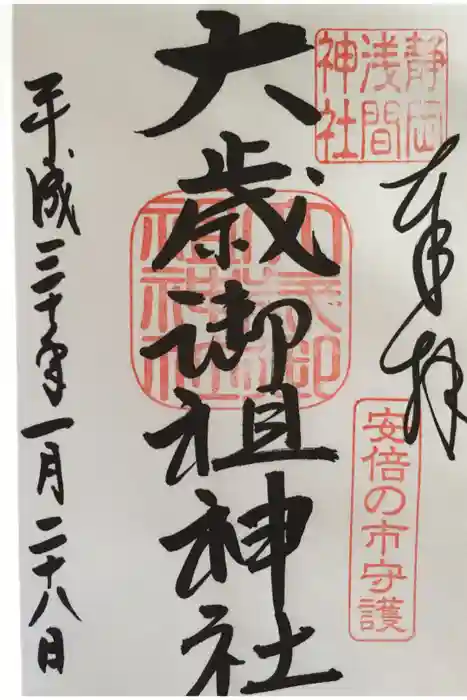 静岡
浅間
神社
奉拝
安倍の市守護
大歳御祖神社
大歳御
祖神社
平成三十年一月二十八日